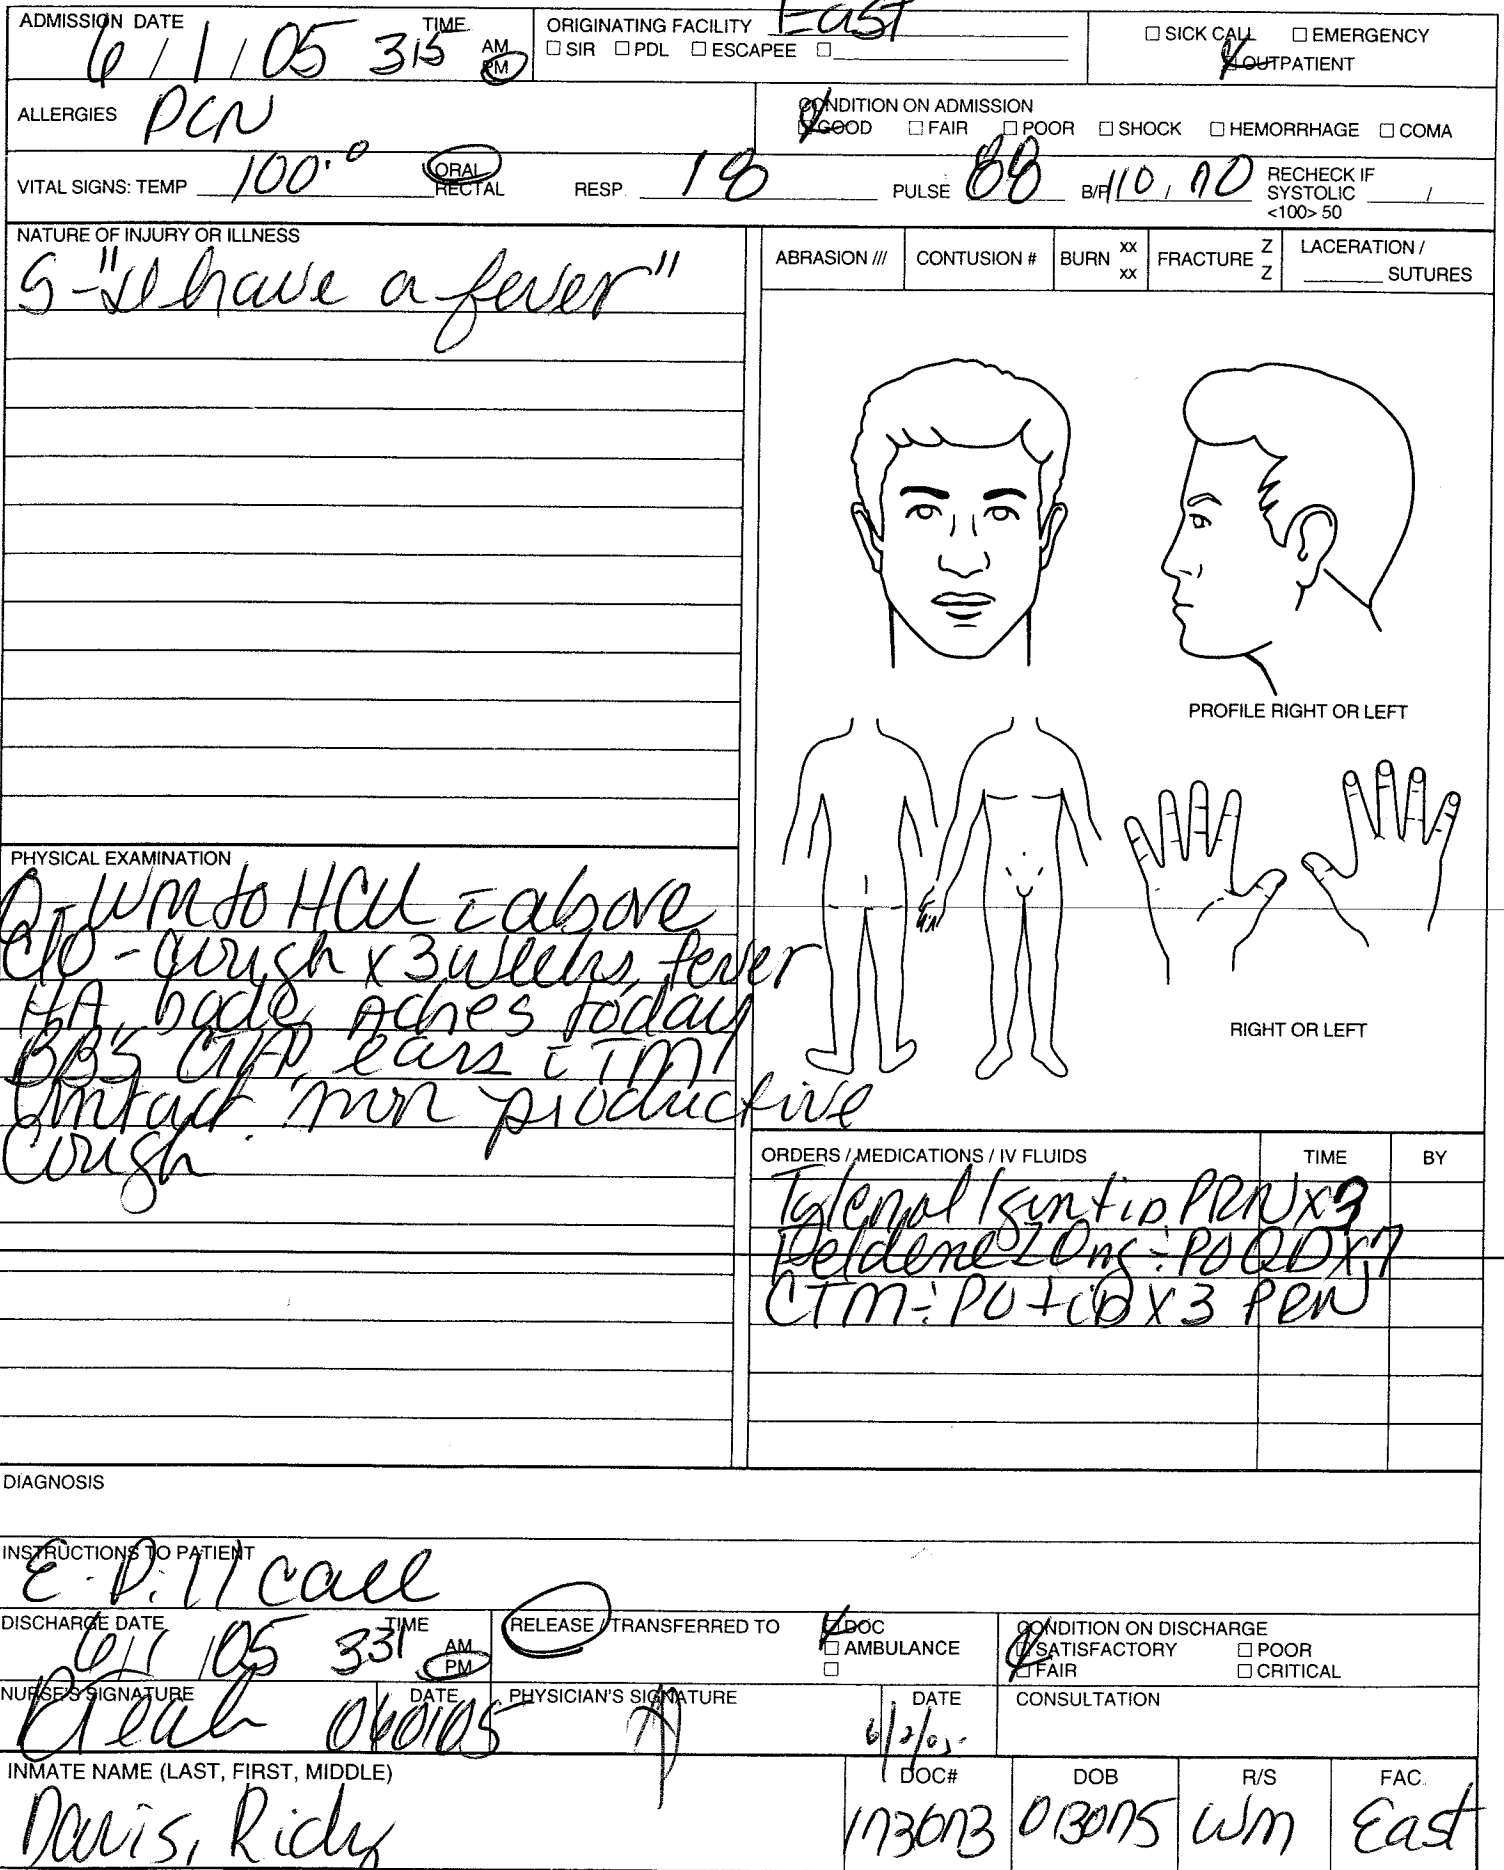 ADMISSION DATE 6 / 1 / 05 TIME 315 AM PM
ORIGINATING FACILITY East
☐ SIR ☐ PDL ☐ ESCAPEE ☐
☐ SICK CALL ☐ EMERGENCY
☒ OUTPATIENT
ALLERGIES PCN
CONDITION ON ADMISSION
☒ GOOD ☐ FAIR ☐ POOR ☐ SHOCK ☐ HEMORRHAGE ☐ COMA
VITAL SIGNS: TEMP 100.0 ORAL RECTAL RESP. 18 PULSE 88 B/P 110 / 70 RECHECK IF SYSTOLIC <100> 50 /
NATURE OF INJURY OR ILLNESS
S-"I have a fever"
ABRASION /// CONTUSION # BURN xx xx FRACTURE Z Z LACERATION / SUTURES
PROFILE RIGHT OR LEFT
RIGHT OR LEFT
PHYSICAL EXAMINATION
O-WM to HCU c above
c/o - cough x 3 weeks, fever
HA, body aches today
BBS CTA, ears c TM
intact. non productive
cough
ORDERS / MEDICATIONS / IV FLUIDS TIME BY
Tylenol PRN x3
Feldene 20mg PO QD x7
CTM PO tid x 3 PRN
DIAGNOSIS
INSTRUCTIONS TO PATIENT
Pill call
DISCHARGE DATE 6/1/05 TIME 331 AM PM
RELEASE / TRANSFERRED TO ☒ DOC
☐ AMBULANCE
☐
CONDITION ON DISCHARGE
☒ SATISFACTORY ☐ POOR
☐ FAIR ☐ CRITICAL
NURSE'S SIGNATURE DATE 060105
PHYSICIAN'S SIGNATURE DATE 6/2/05.
CONSULTATION
INMATE NAME (LAST, FIRST, MIDDLE) DOC# DOB R/S FAC.
Davis, Ricky 173073 013075 WM East